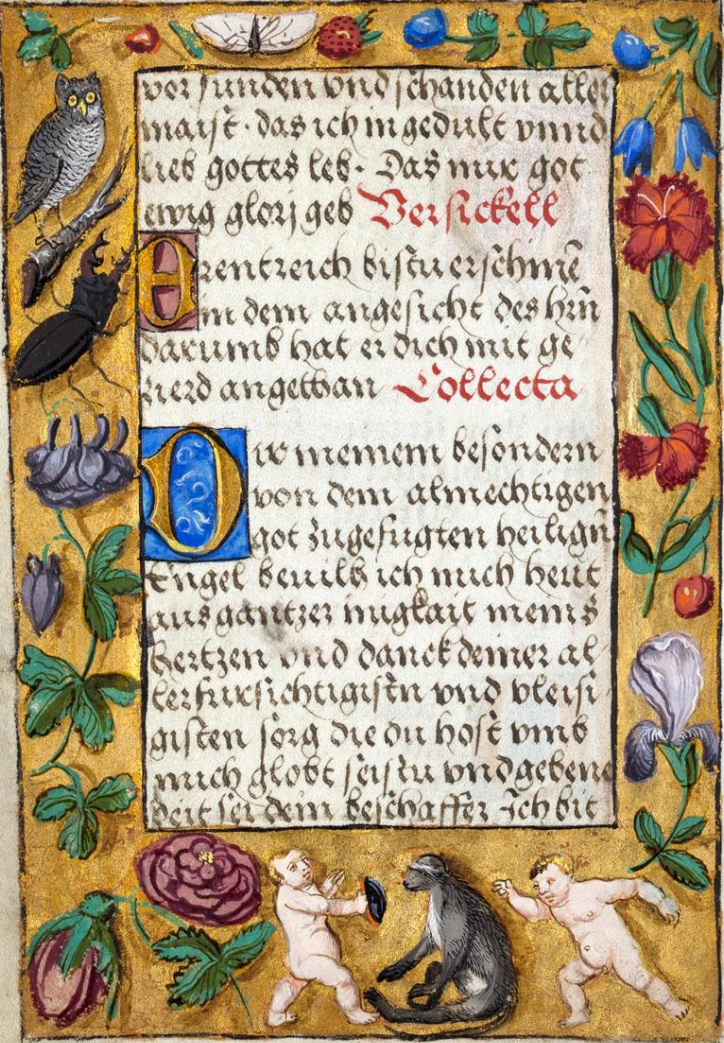 vor sunden vnd schanden aller
maist · das ich in gedult vnnd
lieb gottes leb · Das mir got
ewig glorj geb Versickell
Erentreich bistu erschinē
in dem angesicht des hrn̄
darumb hat er dich mit ge
zierd angethan Collecta
Dir meinem besondern
von dem almechtigen
got zugefugten heilign̄
Engel beuilh ich mich heut
aus gantzer nugkait meins
hertzen vnd danck deiner al-
lerfursichtigistn̄ vnd vleisi-
gisten sorg die du host vmb
mich globt seistu vnd gebene
deit sei dem beschaffer Ich bit